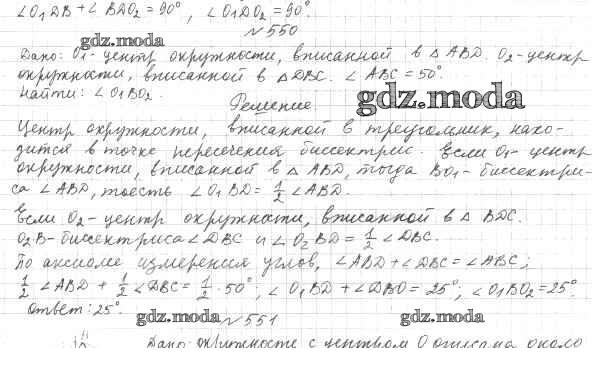 ∠O₁DB + ∠BDO₂ = 90°, ∠O₁DO₂ = 90°.
№550
gdz.moda
Дано: O₁- центр окружности, вписанной в △ABD. O₂-центр
окружности, вписанной в △DBC. ∠ABC = 50°.
Найти: ∠O₁BO₂.
gdz.moda
Решение
Центр окружности, вписанной в треугольник, нахо-
дится в точке пересечения биссектрис. Если O₁- центр
окружности, вписанной в △ABD, тогда BO₁- биссектри-
са ∠ABD, тоесть ∠O₁BD = 1/2 ∠ABD.
Если O₂- центр окружности, вписанной в △BDC.
O₂B- биссектриса ∠DBC и ∠O₂BD = 1/2 ∠DBC.
По аксиоме измерения углов, ∠ABD + ∠DBC = ∠ABC;
1/2 ∠ABD + 1/2 ∠DBC = 1/2 · 50°; ∠O₁BD + ∠DBO = 25°; ∠O₁BO₂ = 25°.
Ответ: 25°.
gdz.moda №551 gdz.moda
Дано: окружность с центром O описана около